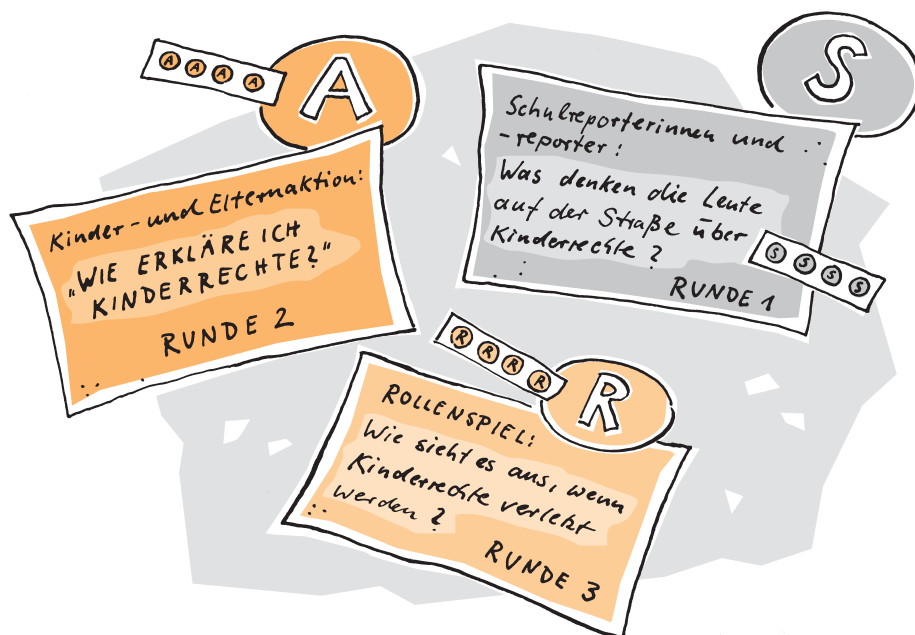 A A A A
A
Kinder- und Elternaktion:
"WIE ERKLÄRE ICH
KINDERRECHTE?"
RUNDE 2
S
Schulreporterinnen und
-reporter:
Was denken die Leute
auf der Straße über
Kinderrechte?
S S S S
RUNDE 1
R R R R
R
ROLLENSPIEL:
Wie sieht es aus, wenn
Kinderrechte verletzt
werden?
RUNDE 3